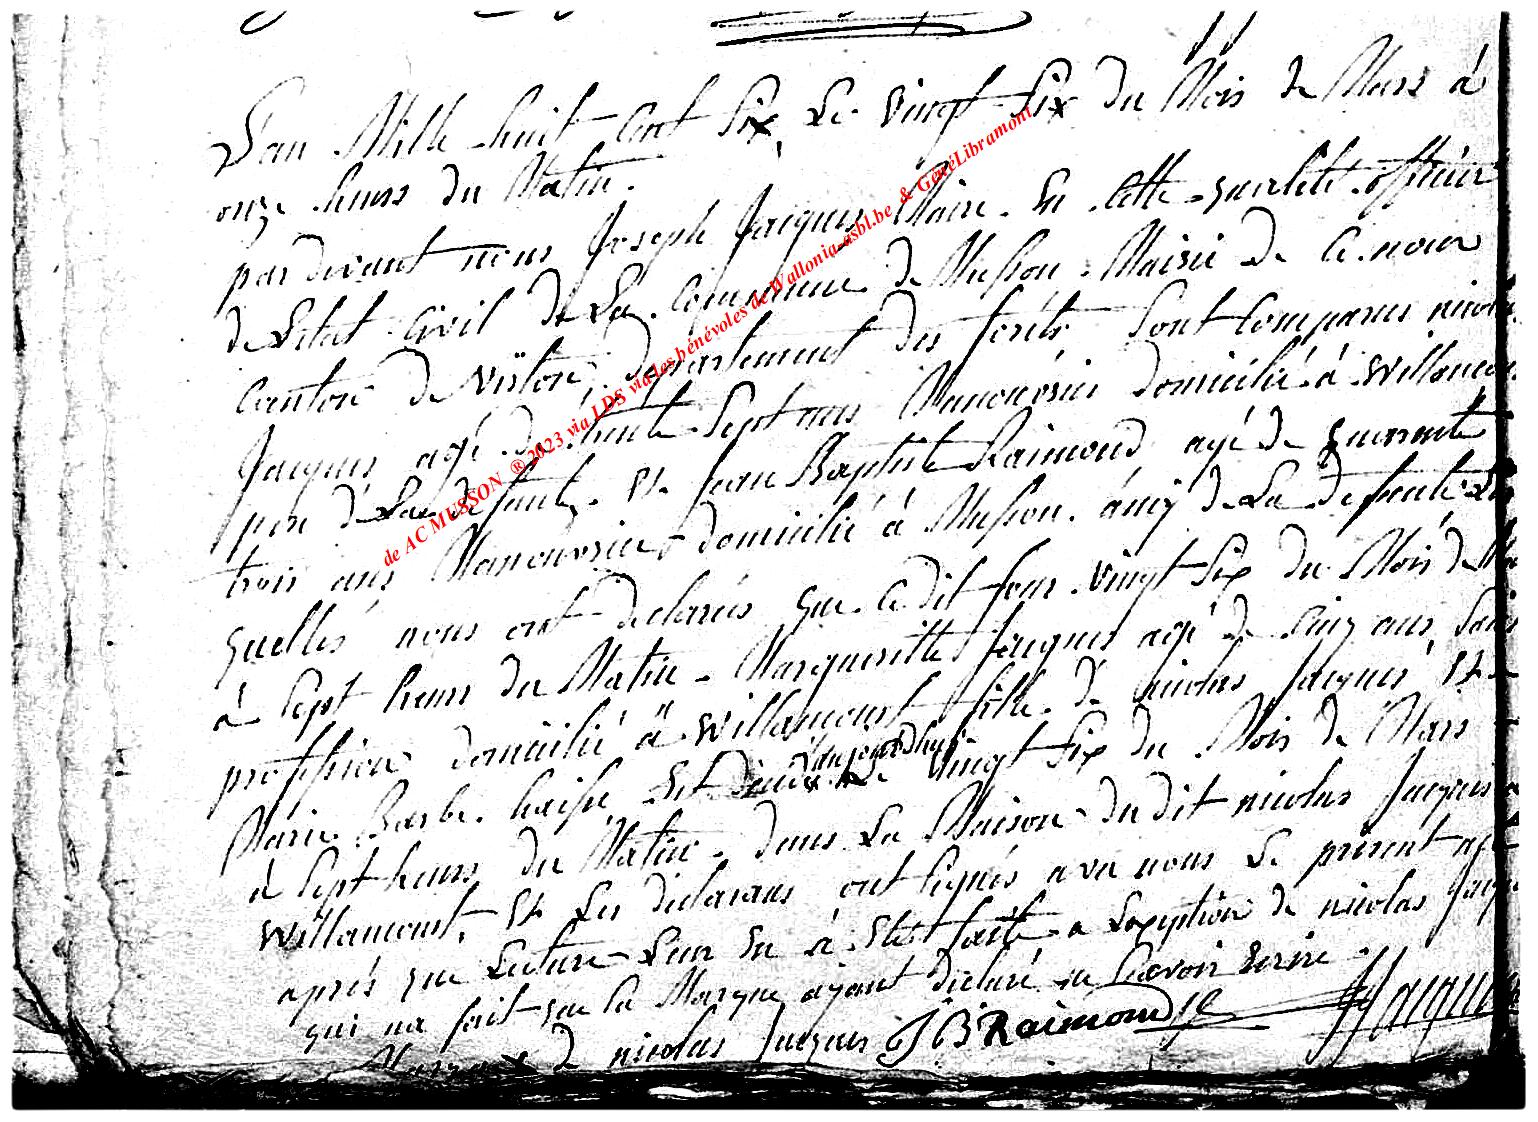 L'an Mille huit Cent Six, Le vingt Six du Mois de Mars à
onze heures du Matin.
par devant nous Joseph Jacques Maire En Cette qualité officier
de L'etat Civil De La Commune de Musson Mairie De Ce nom
Canton De Virton, département des forêts Sont Comparus nicolas
Jacques agé de trente Sept ans Manouvrier domicilié à Willancourt
pere de La defunte Et Jean Baptiste Raimond agé De quarente
trois ans Manouvrier domicilié à Musson amij de La defunte Les
quelles nous ont declarés que Ce dit Jour vingt Six du Mois de
à Sept heures du Matin Margueritte Jacques agé de Cinq ans, Sans
profession domicilié à Willancourt fille de nicolas Jacques Et
Marie Barbe Est aujourdhuy
vingt Six du Mois de Mars
à Sept heures du Matin dans La Maison du dit nicolas Jacques a
Willancourt, Et Les declarans ont Signés avec nous Le présent acte
après que Lecture Leur En à Eté faite a Lexeption de nicolas
qui na fait que Sa Marque ayant declaré ne Scavoir Ecrire
Marque x de nicolas Jacques JB Raimond JJacques
de AC MUSSON ® 2023 via LDS via les bénévoles de Wallonia-asbl.be & GénéLibramont